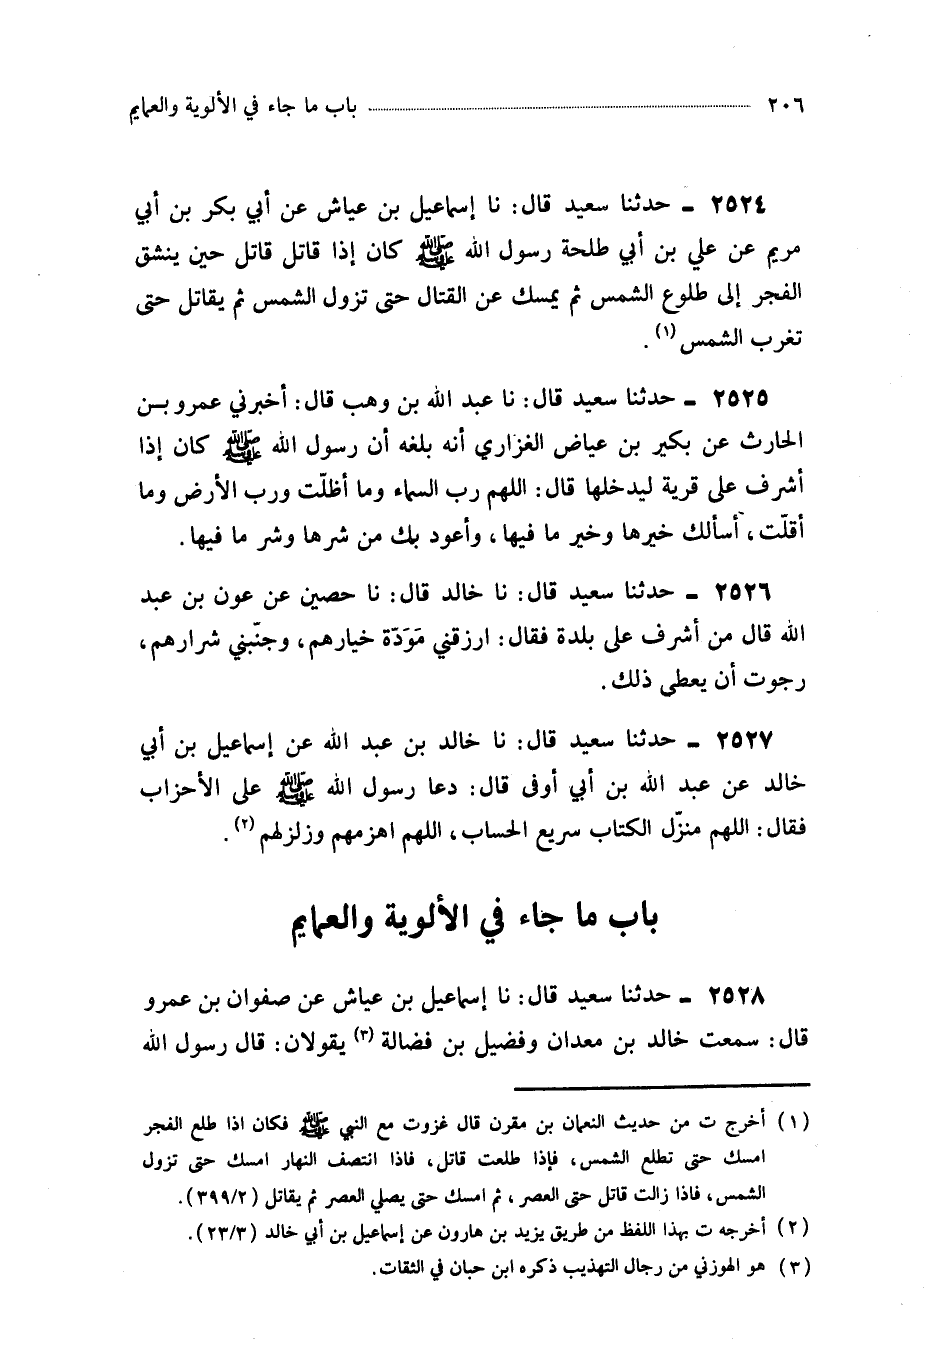 ٢٠٦ باب ما جاء في الألوية والعمايم
٢٥٢٤ ـ حدثنا سعيد قال: نا إسماعيل بن عياش عن أبي بكر بن أبي
مريم عن علي بن أبي طلحة رسول الله ﷺ كان إذا قاتل قاتل حين ينشق
الفجر إلى طلوع الشمس ثم يمسك عن القتال حتى تزول الشمس ثم يقاتل حتى
تغرب الشمس(١).
٢٥٢٥ ـ حدثنا سعيد قال: نا عبد الله بن وهب قال: أخبرني عمرو بـن
الحارث عن بكير بن عياض الغزاري أنه بلغه أن رسول الله ﷺ كان إذا
أشرف على قرية ليدخلها قال: اللهم رب السماء وما أظلّت ورب الأرض وما
أقلّت، أسألك خيرها وخير ما فيها، وأعود بك من شرها وشر ما فيها.
٢٥٢٦ ـ حدثنا سعيد قال: نا خالد قال: نا حصين عن عون بن عبد
الله قال من أشرف على بلدة فقال: ارزقني مَوَدّة خيارهم، وجنّبني شرارهم،
رجوت أن يعطى ذلك.
٢٥٢٧ ـ حدثنا سعيد قال: نا خالد بن عبد الله عن إسماعيل بن أبي
خالد عن عبد الله بن أبي أوفى قال: دعا رسول الله ﷺ على الأحزاب
فقال: اللهم منزّل الكتاب سريع الحساب، اللهم اهزمهم وزلزلهم(٢).
باب ما جاء في الألوية والعمايم
٢٥٢٨ ـ حدثنا سعيد قال: نا إسماعيل بن عياش عن صفوان بن عمرو
قال: سمعت خالد بن معدان وفضيل بن فضالة(٣) يقولان: قال رسول الله
(١) أخرج ت من حديث النعمان بن مقرن قال غزوت مع النبي ﷺ فكان اذا طلع الفجر
امسك حتى تطلع الشمس، فإذا طلعت قاتل، فاذا انتصف النهار امسك حتى تزول
الشمس، فاذا زالت قاتل حتى العصر، ثم امسك حتى يصلي العصر ثم يقاتل (٣٩٩/٢).
(٢) أخرجه ت بهذا اللفظ من طريق يزيد بن هارون عن إسماعيل بن أبي خالد (٢٣/٣).
(٣) هو الهوزني من رجال التهذيب ذكره ابن حبان في الثقات.